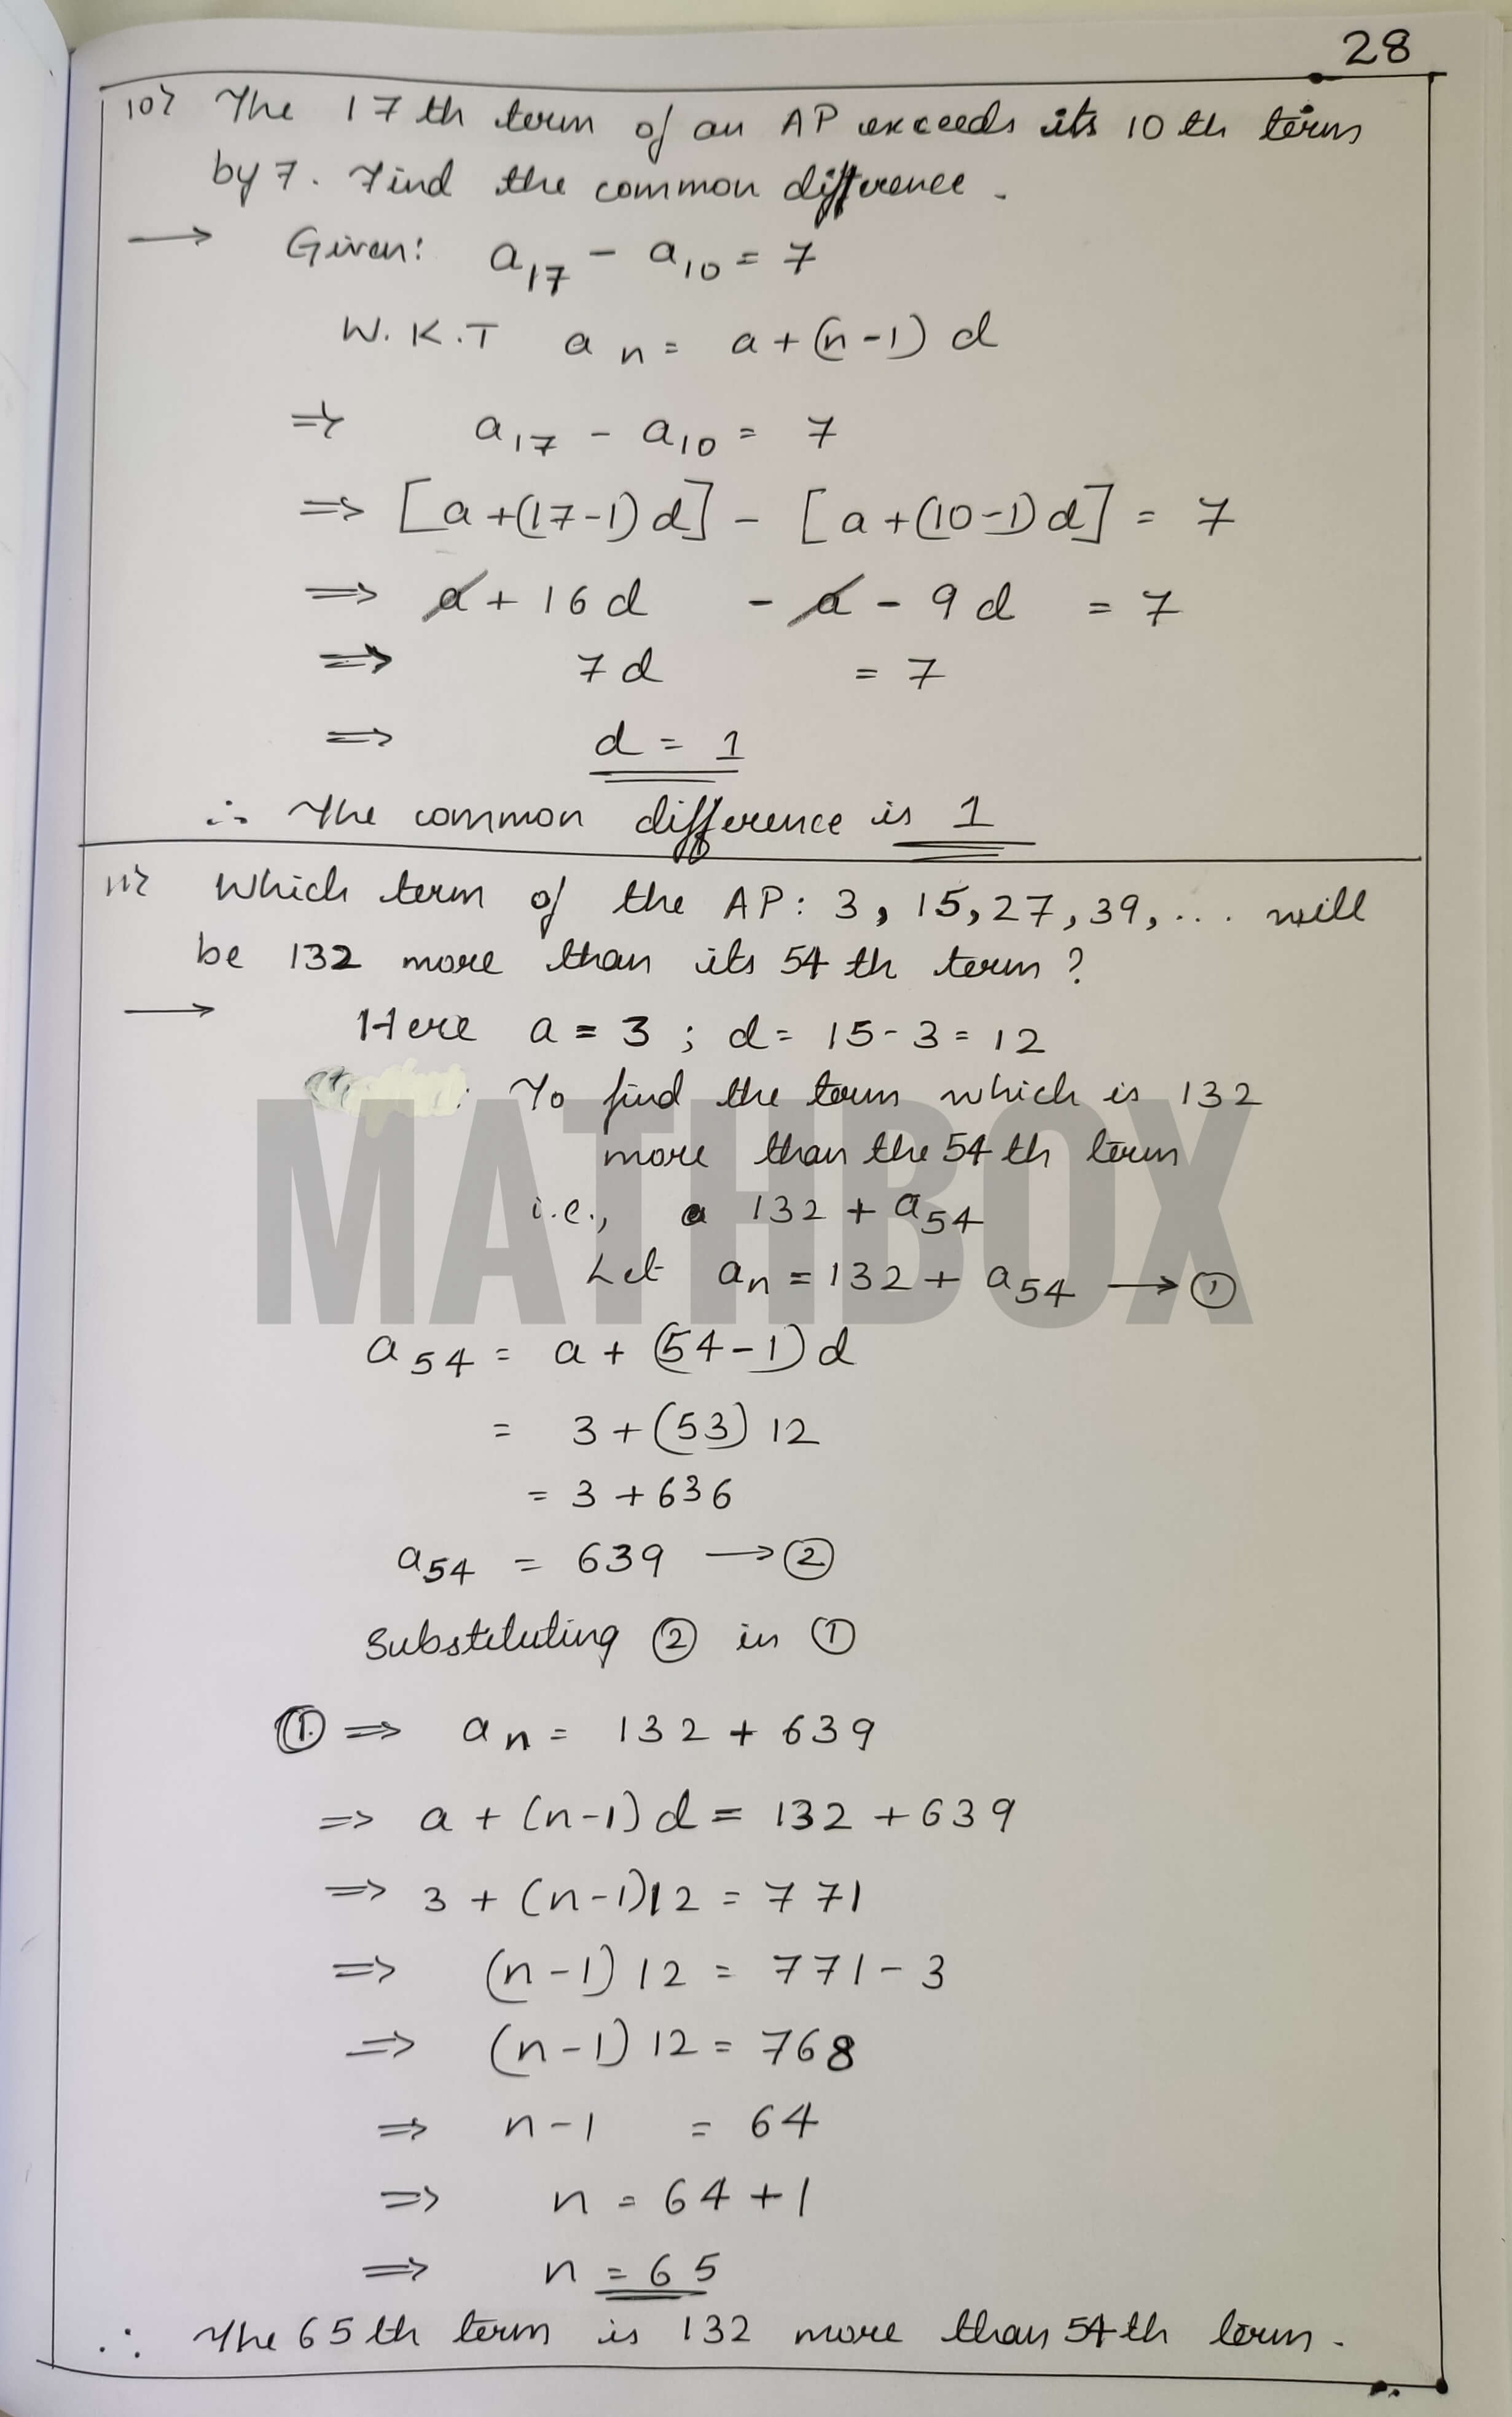 28
10) The 17th term of an AP exceeds its 10th term
by 7. Find the common difference.
→ Given: a₁₇ - a₁₀ = 7
W.K.T aₙ = a+(n-1)d
⇒ a₁₇ - a₁₀ = 7
⇒ [a+(17-1)d] - [a+(10-1)d] = 7
⇒ a+16d - a - 9d = 7
⇒ 7d = 7
⇒ d = 1
∴ The common difference is 1
11) Which term of the AP: 3, 15, 27, 39, ... will
be 132 more than its 54th term?
→ Here a = 3 ; d = 15-3 = 12
: To find the term which is 132
more than the 54th term
i.e., 132 + a₅₄
Let aₙ = 132 + a₅₄ → ①
MATHBOX
a₅₄ = a + (54-1)d
= 3+(53)12
= 3+636
a₅₄ = 639 → ②
Substituting ② in ①
① ⇒ aₙ = 132 + 639
⇒ a + (n-1)d = 132 + 639
⇒ 3 + (n-1)12 = 771
⇒ (n-1)12 = 771-3
⇒ (n-1)12 = 768
⇒ n-1 = 64
⇒ n = 64+1
⇒ n = 65
∴ The 65th term is 132 more than 54th term.